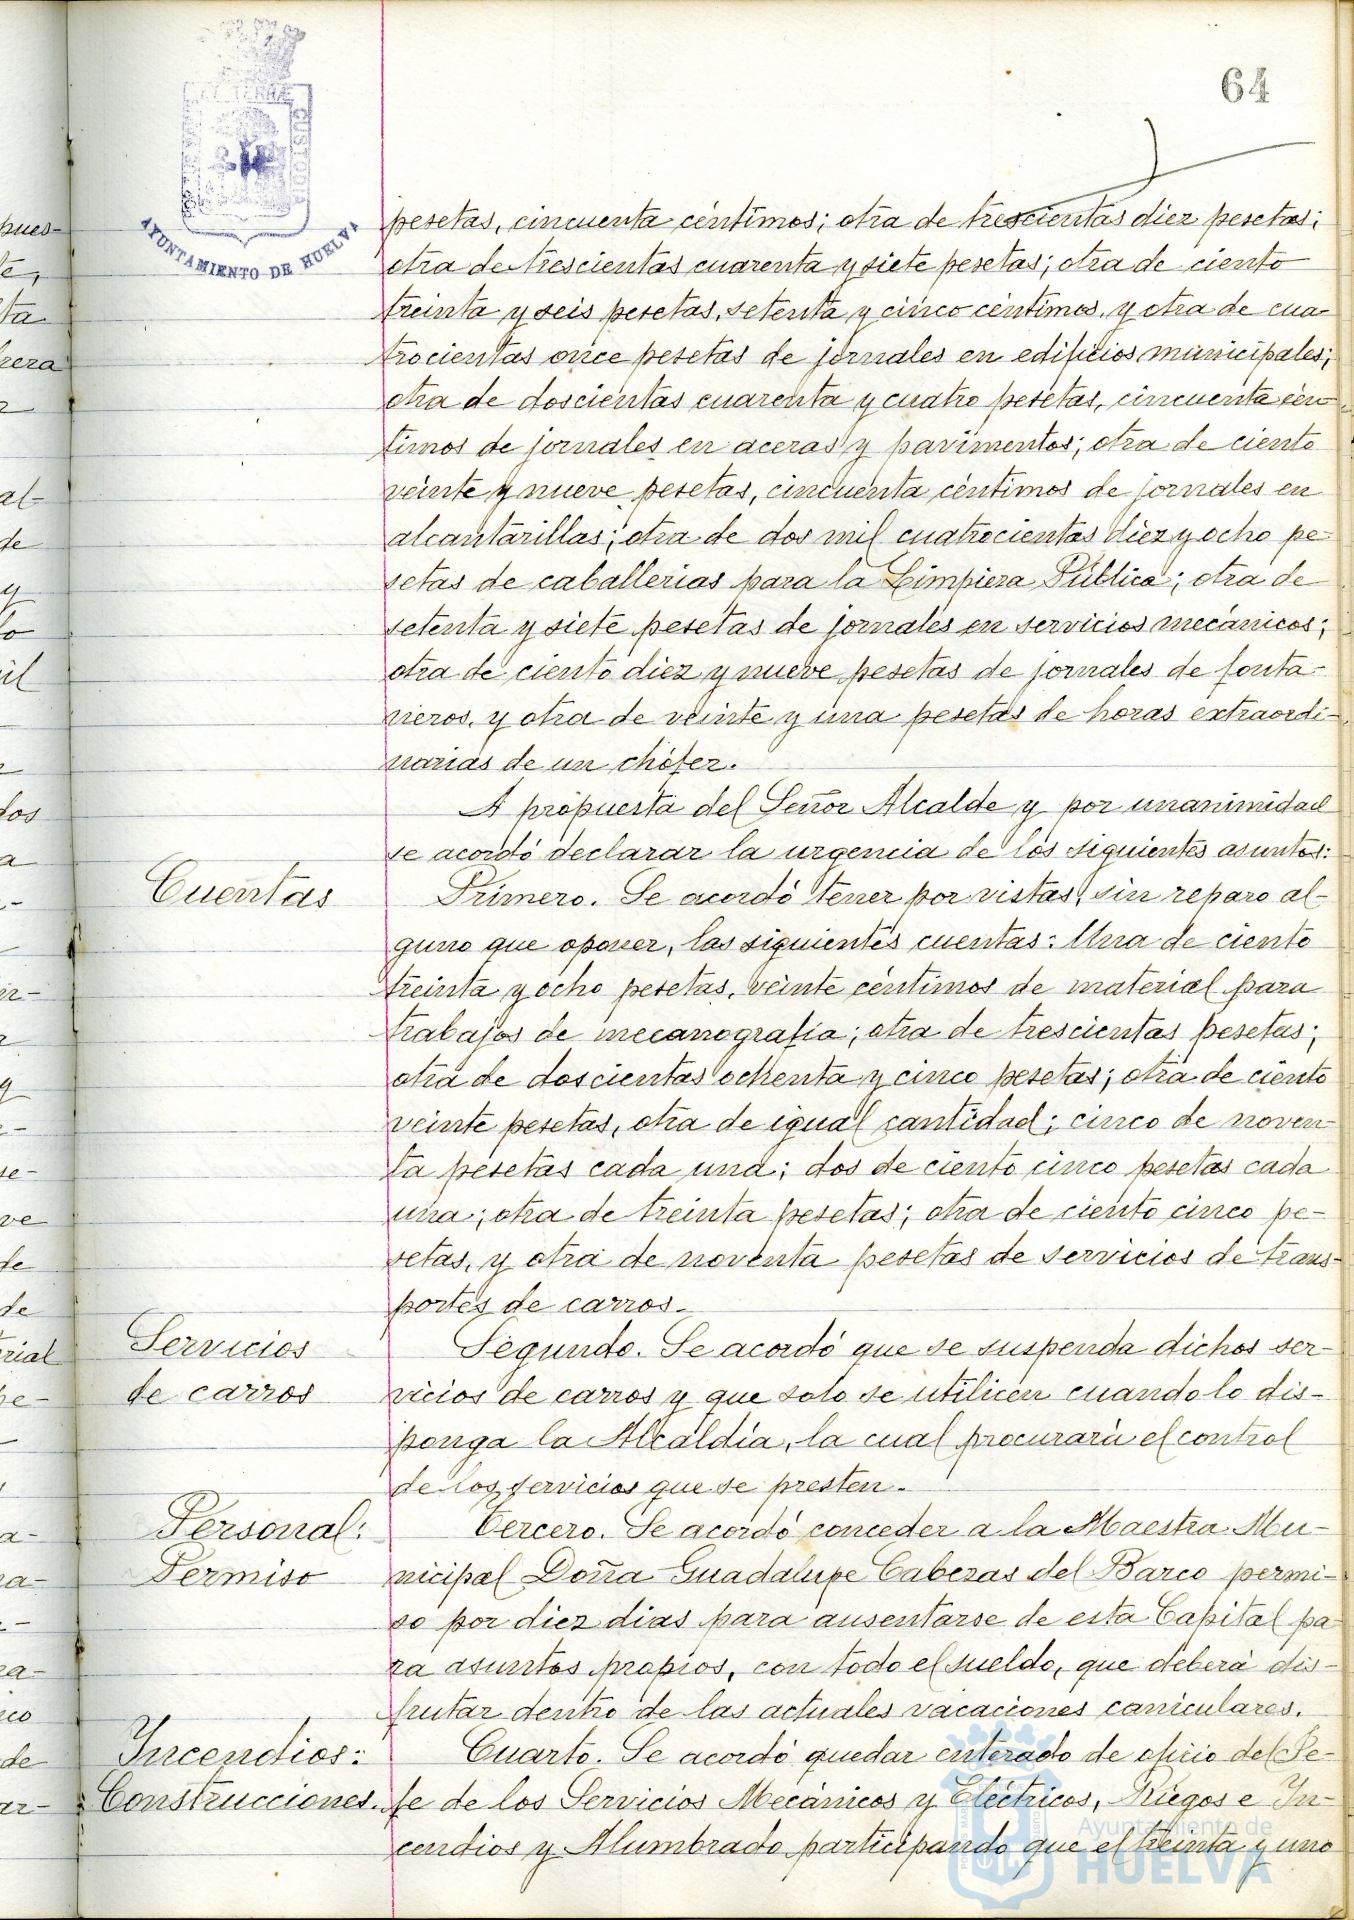 64
PORTUS MARIS ET TERRÆ CUSTODIA
AYUNTAMIENTO DE HUELVA
pesetas, cincuenta céntimos; otra de trescientas diez pesetas;
otra de trescientas cuarenta y siete pesetas; otra de ciento
treinta y seis pesetas, setenta y cinco céntimos, y otra de cua-
trocientas once pesetas de jornales en edificios municipales;
otra de doscientas cuarenta y cuatro pesetas, cincuenta cén-
timos de jornales en aceras y pavimentos; otra de ciento
veinte y nueve pesetas, cincuenta céntimos de jornales en
alcantarillas; otra de dos mil cuatrocientas diez y ocho pe-
setas de caballerias para la Limpieza Pública; otra de
setenta y siete pesetas de jornales en servicios mecánicos;
otra de ciento diez y nueve pesetas de jornales de fonta-
neros, y otra de veinte y una pesetas de horas extraordi-
narias de un chófer.
A propuesta del Señor Alcalde y por unanimidad
se acordó declarar la urgencia de los siguientes asuntos:
Cuentas
Primero. Se acordó tener por vistas, sin reparo al-
guno que oponer, las siguientes cuentas: Una de ciento
treinta y ocho pesetas, veinte céntimos de material para
trabajos de mecanografía; otra de trescientas pesetas;
otra de doscientas ochenta y cinco pesetas; otra de ciento
veinte pesetas, otra de igual cantidad; cinco de noven-
ta pesetas cada una; dos de ciento cinco pesetas cada
una; otra de treinta pesetas; otra de ciento cinco pe-
setas, y otra de noventa pesetas de servicios de trans-
portes de carros.
Servicios
de carros
Segundo. Se acordó que se suspenda dichos ser-
vicios de carros y que solo se utilicen cuando lo dis-
ponga la Alcaldía, la cual procurará el control
de los servicios que se presten.
Personal:
Permiso
Tercero. Se acordó conceder a la Maestra Mu-
nicipal Doña Guadalupe Cabezas del Barco permi-
so por diez dias para ausentarse de esta Capital pa-
ra asuntos propios, con todo el sueldo, que deberá dis-
frutar dentro de las actuales vacaciones caniculares.
Incendios:
Construcciones.
Cuarto. Se acordó quedar enterado de oficio del Je-
fe de los Servicios Mecánicos y Eléctricos, Riegos e In-
cendios y Alumbrado participando que el treinta y uno
Ayuntamiento de
HUELVA